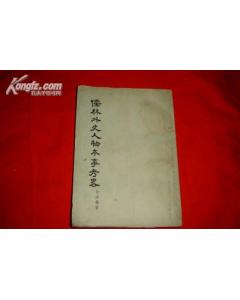 Kongfz.com
孔夫子旧书网
儒林外史人物本事考略